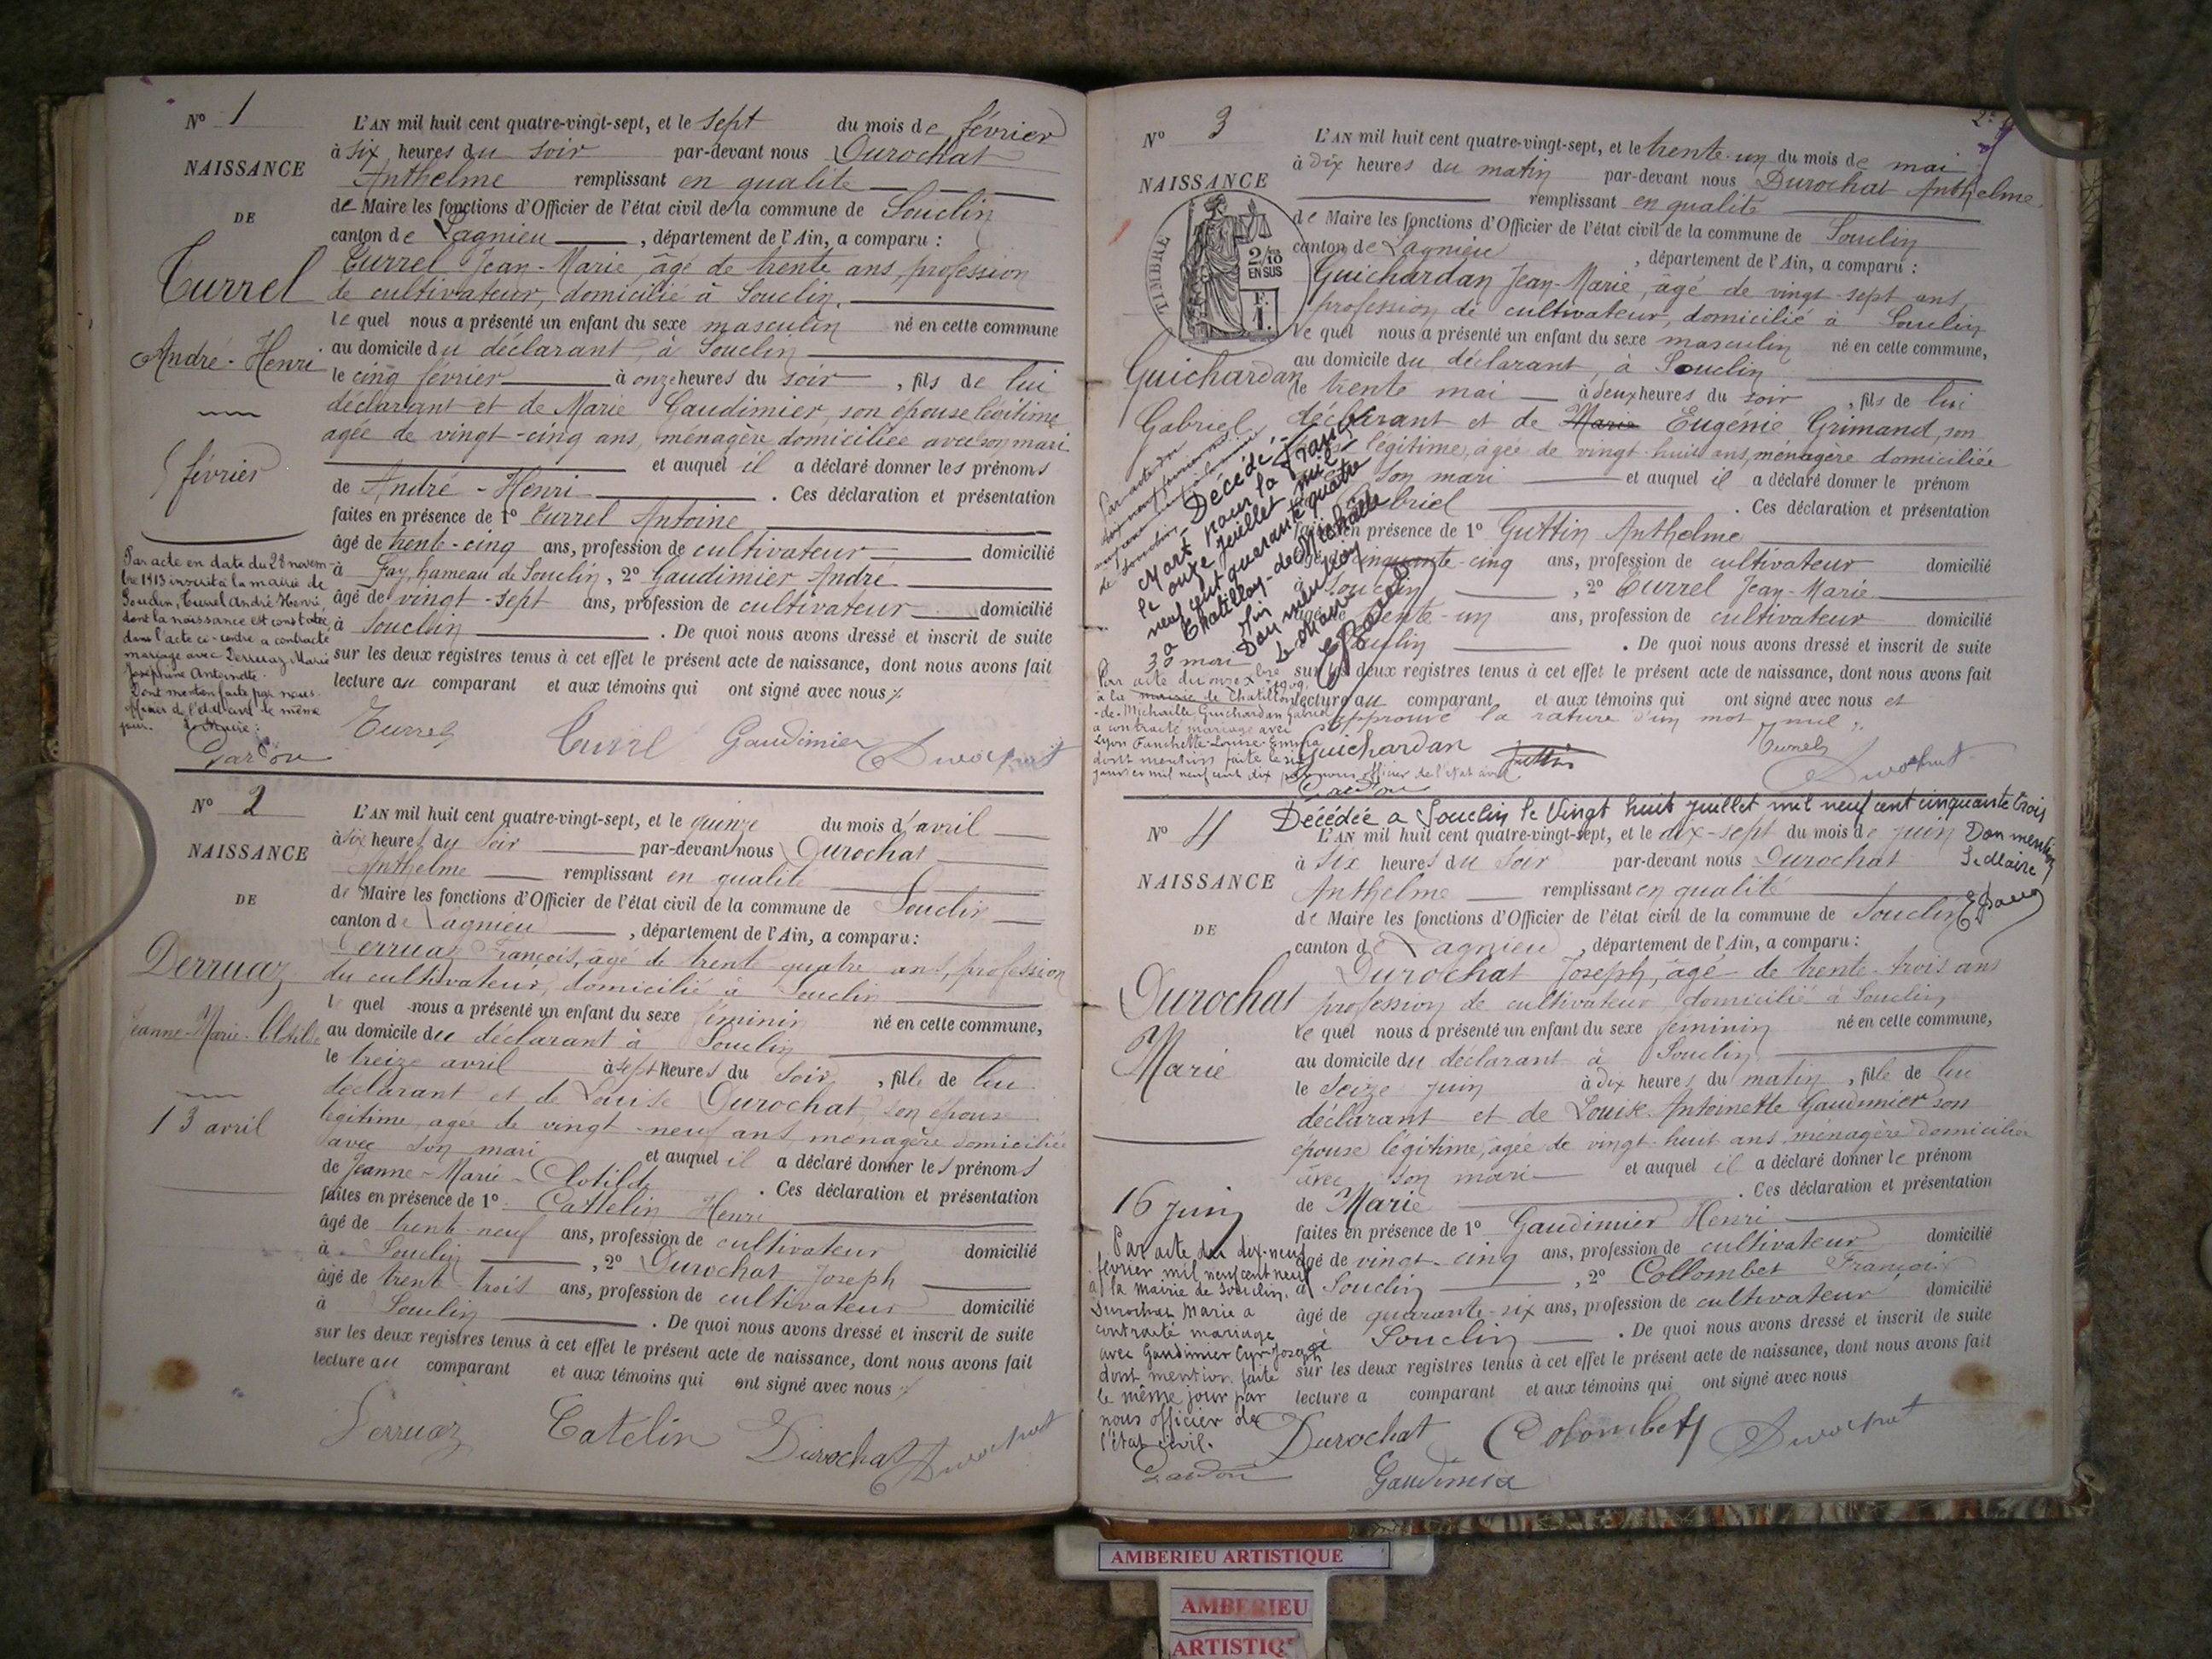 N° 1
NAISSANCE
DE
Turrel
André-Henri
5 février
L'AN mil huit cent quatre-vingt-sept, et le sept du mois de février
à six heures du soir par-devant nous Durochat
Anthelme remplissant en qualité
de Maire les fonctions d'Officier de l'état civil de la commune de Souclin
canton de Lagnieu, département de l'Ain, a comparu :
Turrel Jean-Marie, âgé de trente ans, profession
de cultivateur, domicilié à Souclin,
le quel nous a présenté un enfant du sexe masculin né en cette commune
au domicile du déclarant, à Souclin
le cinq février à onze heures du soir, fils de lui
déclarant et de Marie Gaudimier, son épouse légitime
agée de vingt-cinq ans, ménagère domiciliée avec son mari
et auquel il a déclaré donner les prénoms
de André-Henri. Ces déclaration et présentation
faites en présence de 1° Turrel Antoine
âgé de trente-cinq ans, profession de cultivateur domicilié
à Fay, hameau de Souclin, 2° Gaudimier André
âgé de vingt-sept ans, profession de cultivateur domicilié
à Souclin. De quoi nous avons dressé et inscrit de suite
sur les deux registres tenus à cet effet le présent acte de naissance, dont nous avons fait
lecture au comparant et aux témoins qui ont signé avec nous
Par acte en date du 28 novem-
bre 1913 inscrit à la mairie de
Souclin, Turrel André Henri,
dont la naissance est constatée
dans l'acte ci-contre a contracté
mariage avec Derruaz Marie
Joséphine Antoinette.
Dont mention faite par nous
officier de l'état civil le même
jour. Le Maire :
Gardon
Turrel Turrel Gaudimier Durochat
N° 2
NAISSANCE
DE
Derruaz
Jeanne-Marie-Clotilde
13 avril
L'AN mil huit cent quatre-vingt-sept, et le quinze du mois d'avril
à six heures du soir par-devant nous Durochat
Anthelme remplissant en qualité
de Maire les fonctions d'Officier de l'état civil de la commune de Souclin
canton de Lagnieu, département de l'Ain, a comparu :
Derruaz François, âgé de trent quatre ans, profession
du cultivateur, domicilié à Souclin
le quel nous a présenté un enfant du sexe féminin né en cette commune,
au domicile du déclarant à Souclin
le treize avril à sept heures du soir, fille de lui
déclarant et de Louise Durochat, son épouse
légitime, agée de vingt-neuf ans, ménagère domiciliée
avec son mari et auquel il a déclaré donner les prénoms
de Jeanne-Marie-Clotilde. Ces déclaration et présentation
faites en présence de 1° Cattelin Henri
âgé de trent-neuf ans, profession de cultivateur domicilié
à Souclin, 2° Durochat Joseph
âgé de trente trois ans, profession de cultivateur domicilié
à Souclin. De quoi nous avons dressé et inscrit de suite
sur les deux registres tenus à cet effet le présent acte de naissance, dont nous avons fait
lecture au comparant et aux témoins qui ont signé avec nous
Derruaz Catelin Durochat Durochat
N° 3
NAISSANCE
TIMBRE
2/10
EN SUS
F.
1.
Guichardan
Gabriel
30 mai
L'AN mil huit cent quatre-vingt-sept, et le trente-un du mois de mai
à dix heures du matin par-devant nous Durochat Anthelme
remplissant en qualité
de Maire les fonctions d'Officier de l'état civil de la commune de Souclin
canton de Lagnieu, département de l'Ain, a comparu :
Guichardan Jean-Marie, âgé de vingt-sept ans,
profession de cultivateur, domicilié à Souclin
le quel nous a présenté un enfant du sexe masculin né en cette commune,
au domicile du déclarant, à Souclin
le trente mai à deux heures du soir, fils de lui
déclarant et de Marie Eugénie Grimand, son
légitime, âgée de vingt-huit ans, ménagère domiciliée
son mari et auquel il a déclaré donner le prénom
Gabriel. Ces déclaration et présentation
en présence de 1° Guttin Anthelme
cinquante-cinq ans, profession de cultivateur domicilié
à Souclin, 2° Turrel Jean-Marie
âgé de trente-un ans, profession de cultivateur domicilié
Souclin. De quoi nous avons dressé et inscrit de suite
sur les deux registres tenus à cet effet le présent acte de naissance, dont nous avons fait
lecture au comparant et aux témoins qui ont signé avec nous et
approuvé la rature d'un mot nul
Décédé
Mort pour la France
le onze juillet mil
neuf cent quarante quatre
à Chatillon-de-Michaille
Ain
Don mention
Le Maire
Par acte du onze
à la mairie de Chatillon
-de-Michaille, Guichardan Gabriel
a contracté mariage avec
Lyon Fanchette-Louise-Emma
dont mention faite le six
janvier mil neuf cent dix par nous officier de l'état civil
Gardon
Guichardan Guttin Turrel Durochat
N° 4
NAISSANCE
DE
Durochat
Marie
16 juin
Décédée a Souclin le Vingt huit juillet mil neuf cent cinquante trois
Don mention
Le Maire
L'AN mil huit cent quatre-vingt-sept, et le dix-sept du mois de juin
à six heures du soir par-devant nous Durochat
Anthelme remplissant en qualité
de Maire les fonctions d'Officier de l'état civil de la commune de Souclin
canton de Lagnieu, département de l'Ain, a comparu :
Durochat Joseph, âgé de trente-trois ans
profession de cultivateur, domicilié à Souclin,
le quel nous a présenté un enfant du sexe feminin né en cette commune,
au domicile du déclarant à Souclin
le seize juin à dix heures du matin, fille de lui
déclarant et de Louise-Antoinette Gaudimier son
épouse légitime, agée de vingt-huit ans, ménagère domiciliée
avec son mari et auquel il a déclaré donner le prénom
de Marie. Ces déclaration et présentation
faites en présence de 1° Gaudimier Henri
âgé de vingt-cinq ans, profession de cultivateur domicilié
à Souclin, 2° Collombet François
âgé de quarante-six ans, profession de cultivateur domicilié
à Souclin. De quoi nous avons dressé et inscrit de suite
sur les deux registres tenus à cet effet le présent acte de naissance, dont nous avons fait
lecture a comparant et aux témoins qui ont signé avec nous
Par acte du dix-neuf
février mil neuf cent neuf
à la Mairie de Souclin,
Durochat Marie a
contracté mariage
avec Gaudimier Cyr-Joseph
dont mention faite
le même jour par
nous officier de
l'état civil.
Gardon
Durochat Colombet Durochat
Gaudimier
AMBERIEU ARTISTIQUE
AMBERIEU
ARTISTIQ